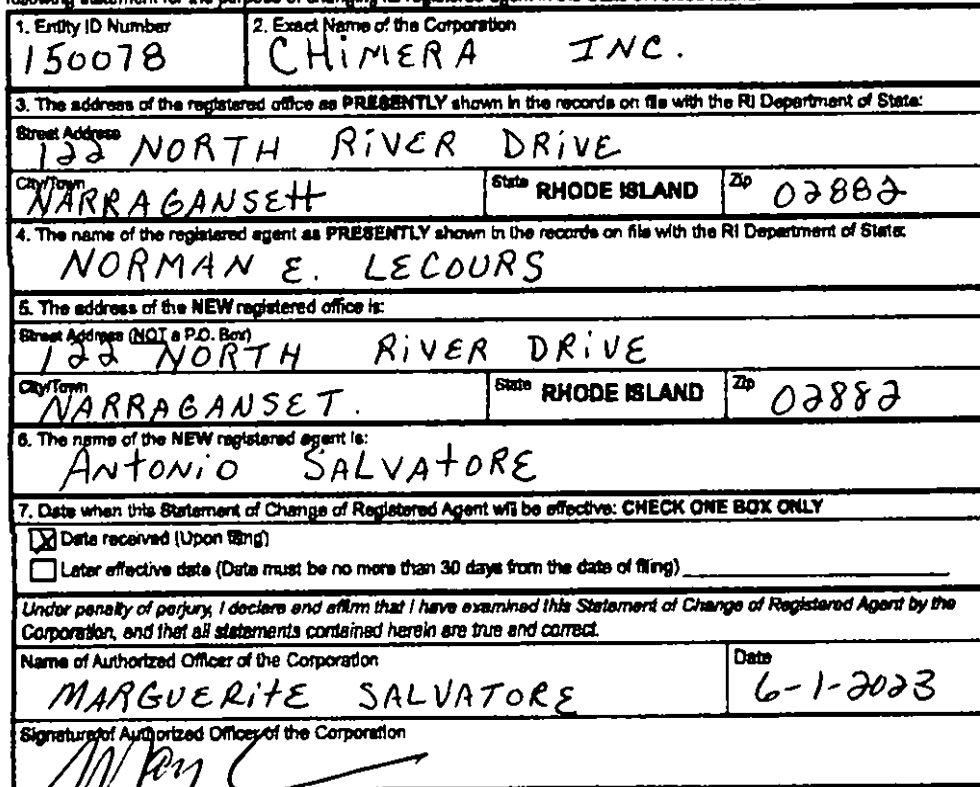 following statement for the purpose of changing its registered agent in the State of Rhode Island:
1. Entity ID Number
2. Exact Name of the Corporation
150078
CHiMERA INC.
3. The address of the registered office as PRESENTLY shown in the records on file with the RI Department of State:
Street Address
122 NORTH RiVER DRiVE
City/Town
State
RHODE ISLAND
Zip
NARRAGANSEtt
02882
4. The name of the registered agent as PRESENTLY shown in the records on file with the RI Department of State:
NORMAN E. LECOURS
5. The address of the NEW registered office is:
Street Address (NOT a P.O. Box)
122 NORTH RiVER DRiVE
City/Town
State
RHODE ISLAND
Zip
NARRAGANSET.
02882
6. The name of the NEW registered agent is:
ANtONiO SALVAtORE
7. Date when this Statement of Change of Registered Agent will be effective: CHECK ONE BOX ONLY
Date received (Upon filing)
Later effective date (Date must be no more than 30 days from the date of filing)
Under penalty of perjury, I declare and affirm that I have examined this Statement of Change of Registered Agent by the
Corporation, and that all statements contained herein are true and correct.
Name of Authorized Officer of the Corporation
Date
MARGUERitE SALVATORE
6-1-2023
Signature of Authorized Officer of the Corporation